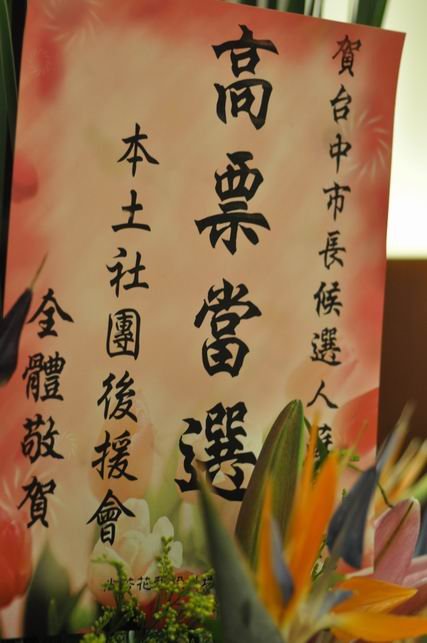 賀台中市長候選人蘇
高票當選
本土社團後援會
全體敬賀